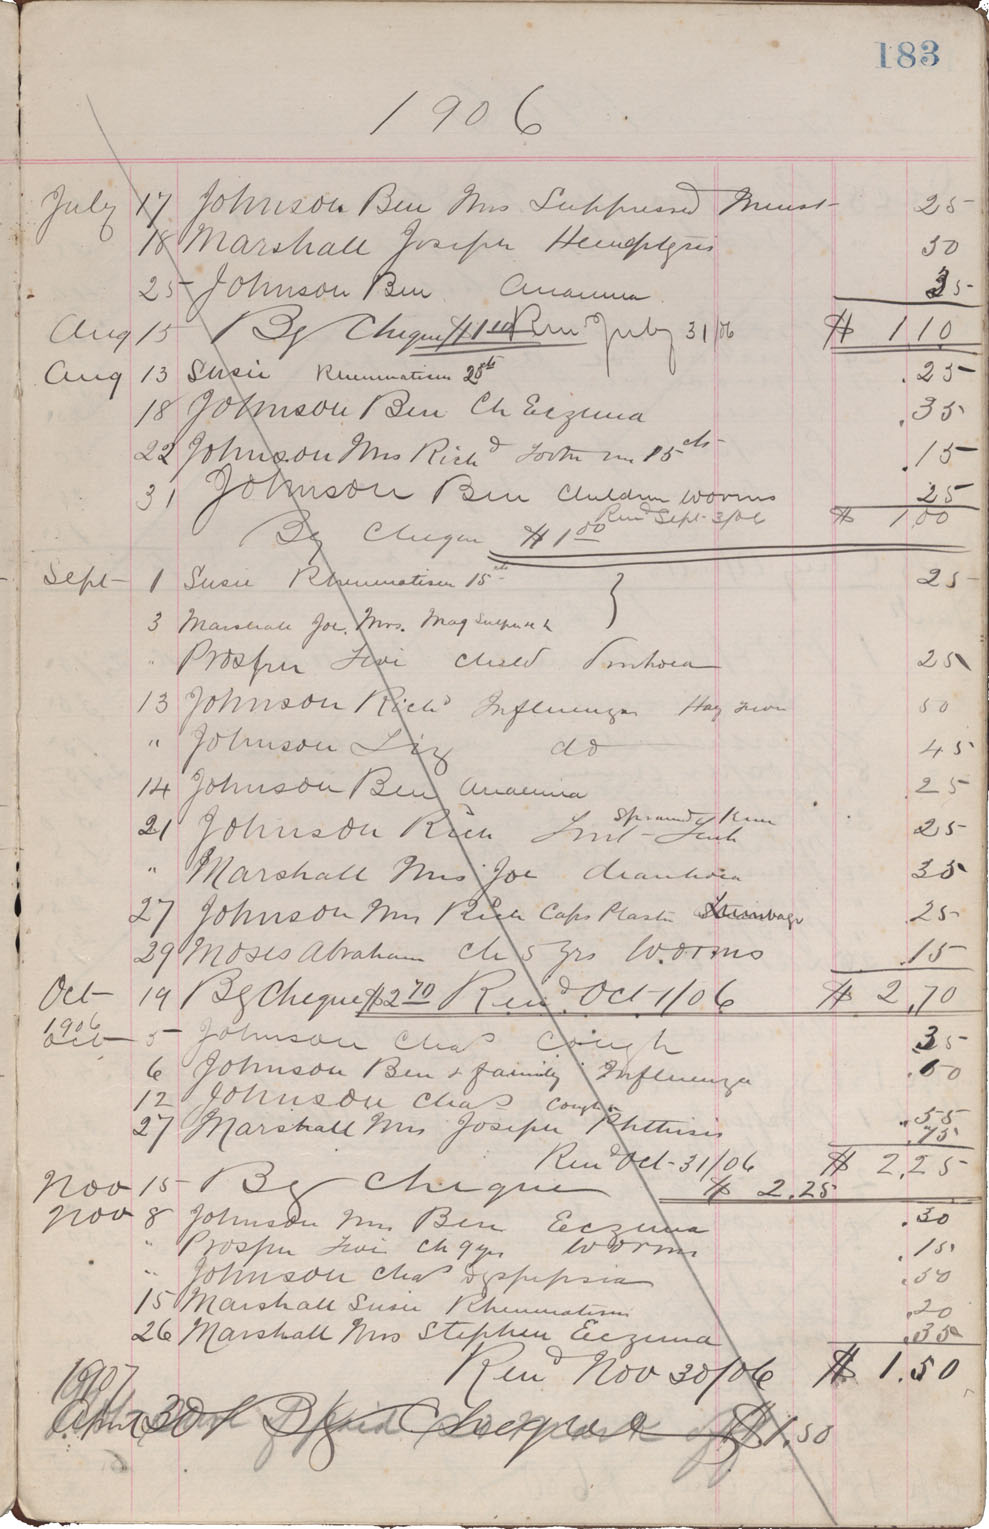 183
1906
July 17 Johnson Ben Mrs Suppressed Menst 25
18 Marshall Joseph Hemoptysis 50
25 Johnson Ben Anaemia 35
Aug 15 By Cheque $1 10 Rend July 31/06 $ 1 10
Aug 13 Susie Rheumatism 25 cts .25
18 Johnson Ben Ch Eczema .35
22 Johnson Mrs Richd 15 cts .15
31 Johnson Ben Children worms 25
Rend Sept 3/06 $ 1 00
By Cheque $1 00
Sept 1 Susie Rheumatism 15 cts } 25
3 Marshall Joe. Mrs. Mag Sulph
" Prosper Levi Child Diarrhoea 25
13 Johnson Richd Influenza Hay Fever 50
" Johnson Liz do 45
14 Johnson Ben Anaemia 25
21 Johnson Rich Knee 25
" Marshall Mrs Joe diarrhoea 35
27 Johnson Mrs Rich Caps Plaster Lumbago 25
29 Moses Abraham Ch 5 yrs Worms .15
Oct 19 By Cheque $2 70 Rend. Oct 1/06 $ 2.70
1906
Oct 5 Johnson Chas Cough .35
6 Johnson Ben & family Influenza .60
12 Johnson Chas Cough .55
27 Marshall Mrs Joseph Phthisis .75
Rend Oct 31/06 $ 2.25
Nov 15 By Cheque $ 2.25
Nov 8 Johnson Mrs Ben Eczema .30
" Prosper Levi Ch 9 yrs Worms .15
" Johnson Chas Dyspepsia .50
15 Marshall Susie Rheumatism .20
26 Marshall Mrs Stephen Eczema .35
Rend Nov 30/06 $ 1.50
1907
By Cheque $1.50